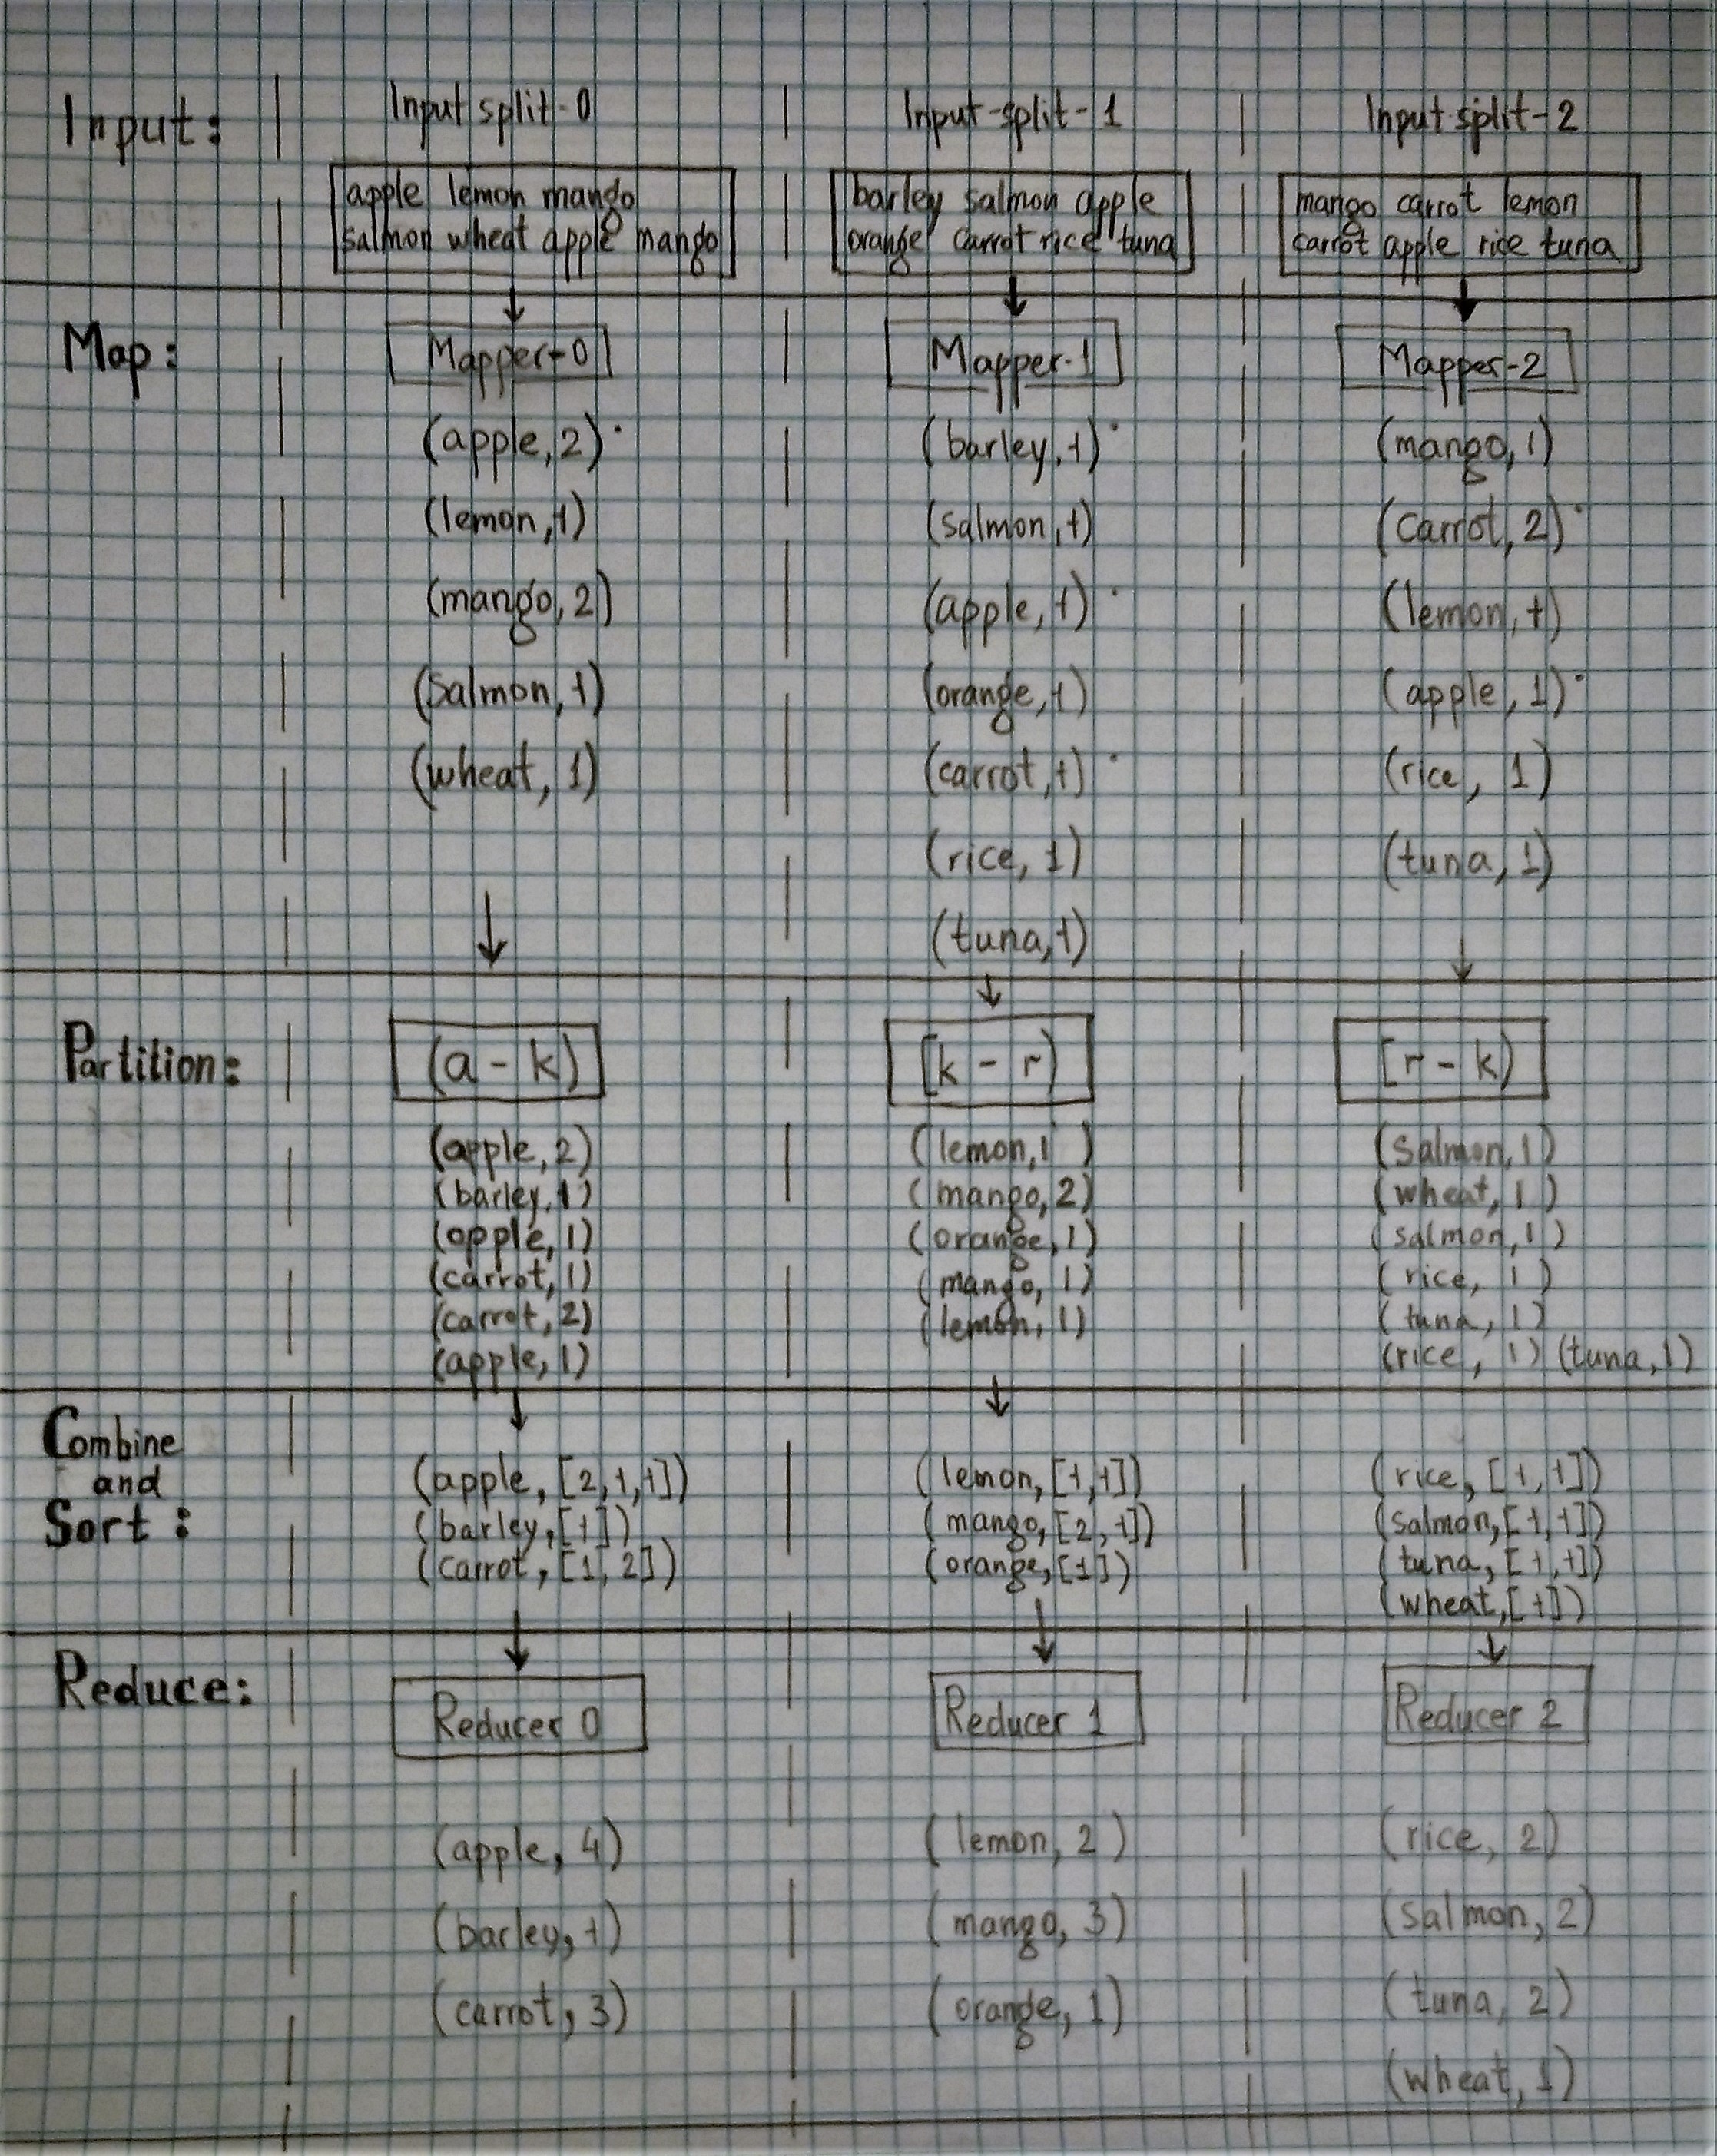 Input:
Input split-0
Input-split-1
Input split-2
apple lemon mango
salmon wheat apple mango
barley salmon apple
orange carrot rice tuna
mango carrot lemon
carrot apple rice tuna
Map:
Mapper-0
(apple,2)
(lemon,1)
(mango,2)
(salmon,1)
(wheat,1)
Mapper-1
(barley,1)
(salmon,1)
(apple,1)
(orange,1)
(carrot,1)
(rice,1)
(tuna,1)
Mapper-2
(mango,1)
(carrot,2)
(lemon,1)
(apple,1)
(rice, 1)
(tuna,1)
Partition:
(a - k)
(apple,2)
(barley,1)
(apple,1)
(carrot,1)
(carrot,2)
(apple,1)
[k - r)
(lemon,1)
(mango,2)
(orange,1)
(mango,1)
(lemon,1)
[r - k)
(salmon,1)
(wheat,1)
(salmon,1)
(rice, 1)
(tuna, 1)
(rice, 1) (tuna,1)
Combine
and
Sort:
(apple, [2,1,1])
(barley,[1])
(carrot, [1,2])
(lemon,[1,1])
(mango,[2,1])
(orange,[1])
(rice, [1,1])
(salmon,[1,1])
(tuna, [1,1])
(wheat,[1])
Reduce:
Reducer 0
(apple, 4)
(barley,1)
(carrot, 3)
Reducer 1
(lemon, 2)
(mango, 3)
(orange, 1)
Reducer 2
(rice, 2)
(salmon, 2)
(tuna, 2)
(wheat, 1)